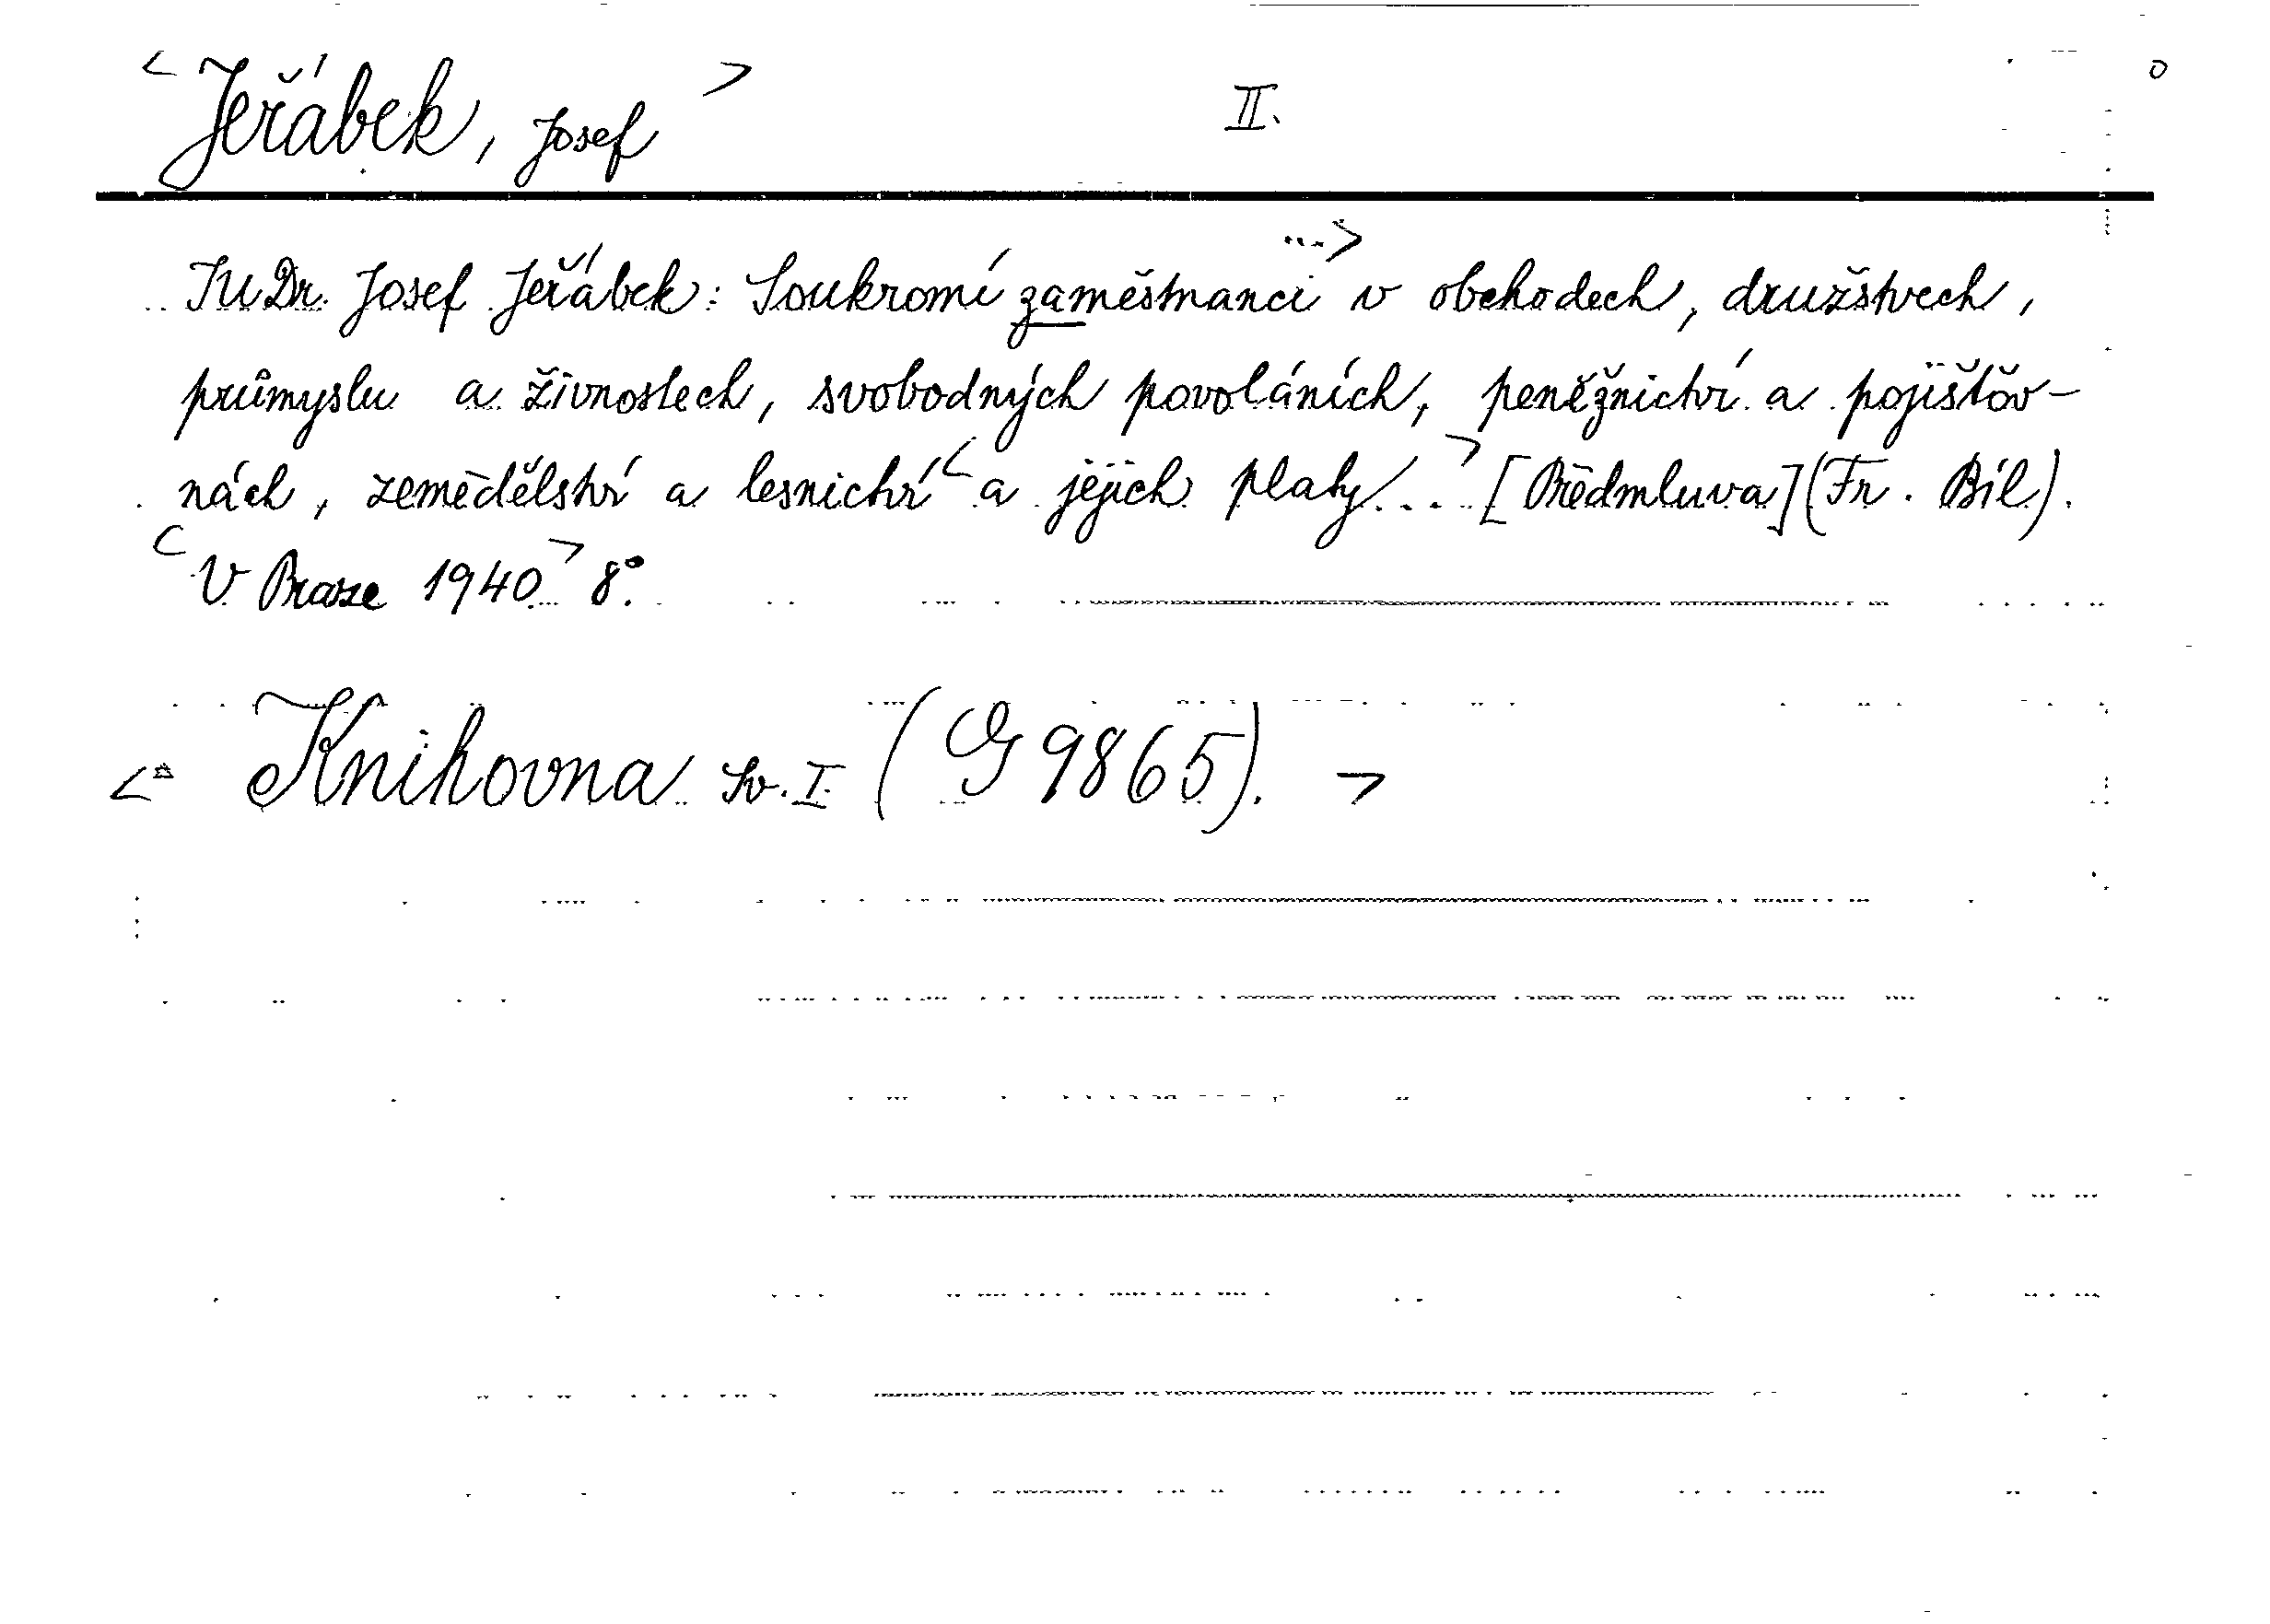 < Jeřábek, Josef > II.
JUDr. Josef Jeřábek: Soukromí zaměstnanci ...> v obchodech, družstvech,
průmyslu a živnostech, svobodných povoláních, peněžnictví a pojišťov-
nách, zemědělství a lesnictví < a jejich platy... > [Předmluva] (Fr. Bíl).
< V Praze 1940 > 8°.
< = Knihovna Sv. I. (G 9865). >